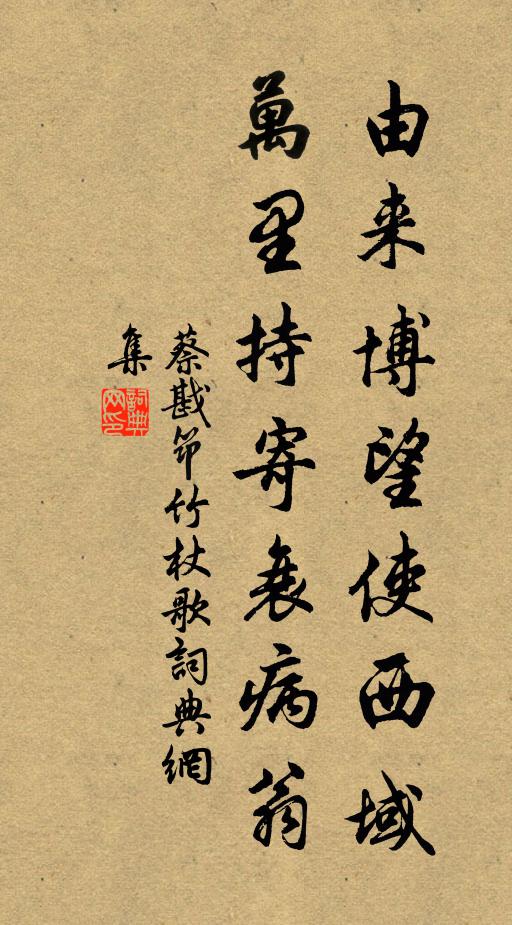 由来博望使西域
萬里持寄衰病翁
蔡戡筇竹杖歌詞典網
集
詞典
网印